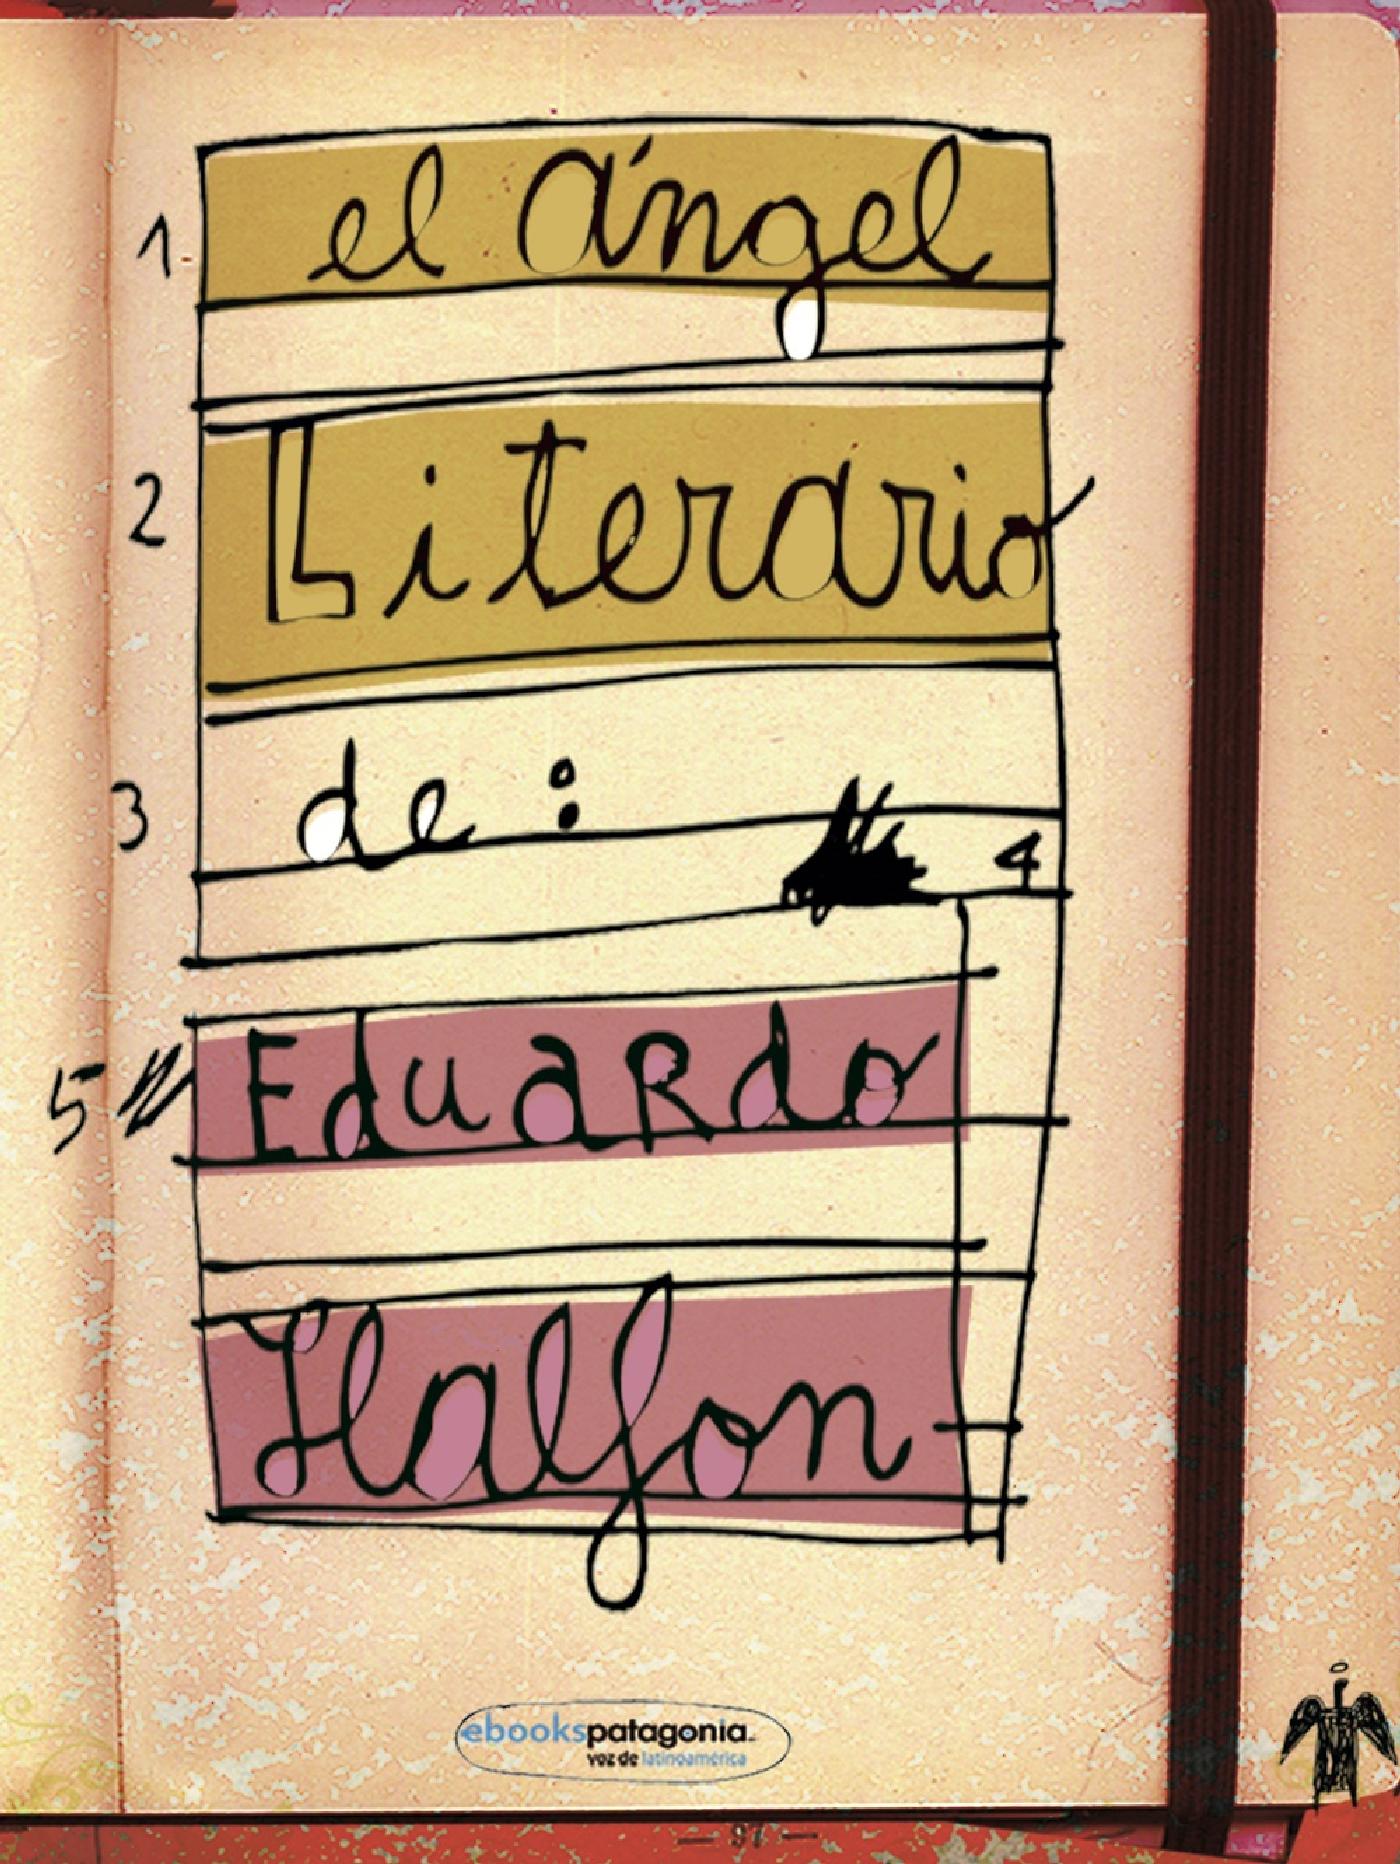 1. el Ángel
2 Literario
3 de :
4
5 Eduardo
Halfon
ebookspatagonia.
voz de latinoamérica
— 97 —